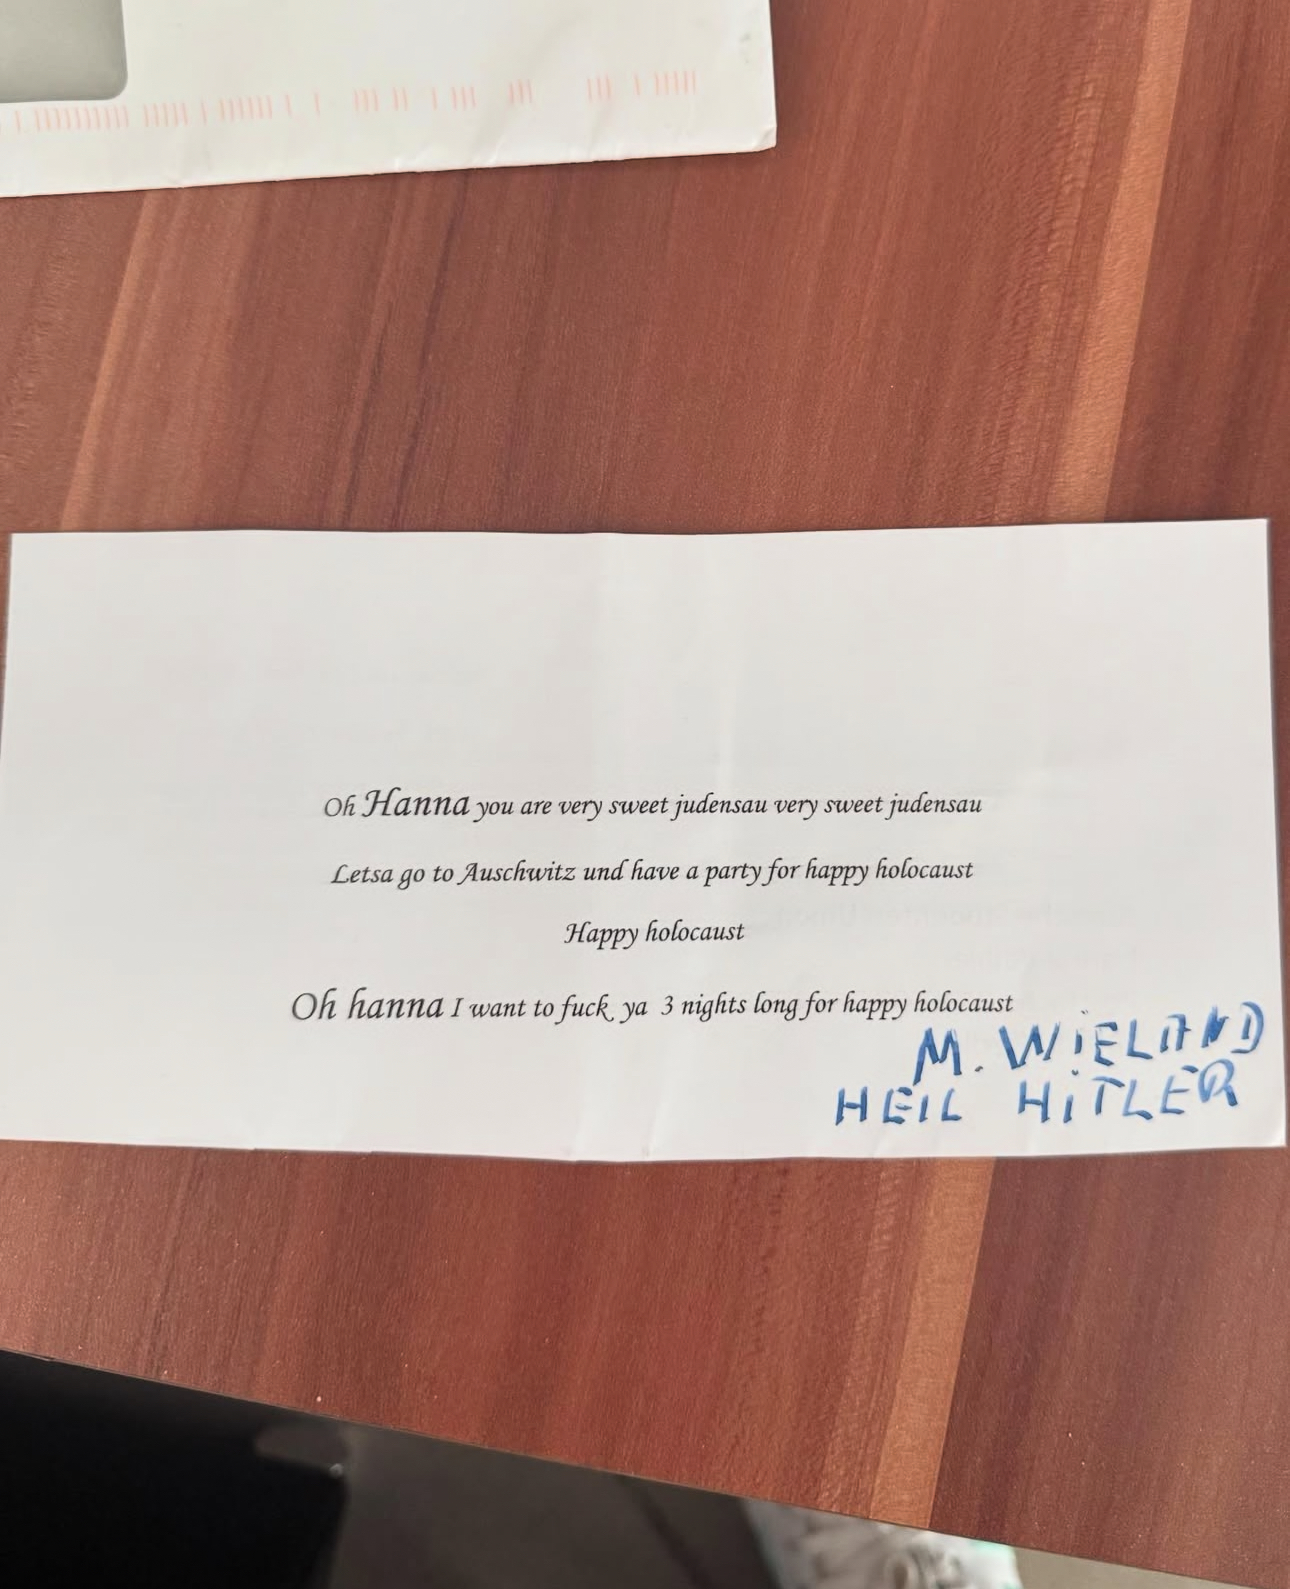 Oh Hanna you are very sweet judensau very sweet judensau
Letsa go to Auschwitz und have a party for happy holocaust
Happy holocaust
Oh hanna I want to fuck ya 3 nights long for happy holocaust
M. WiELAND
HEIL HiTLER